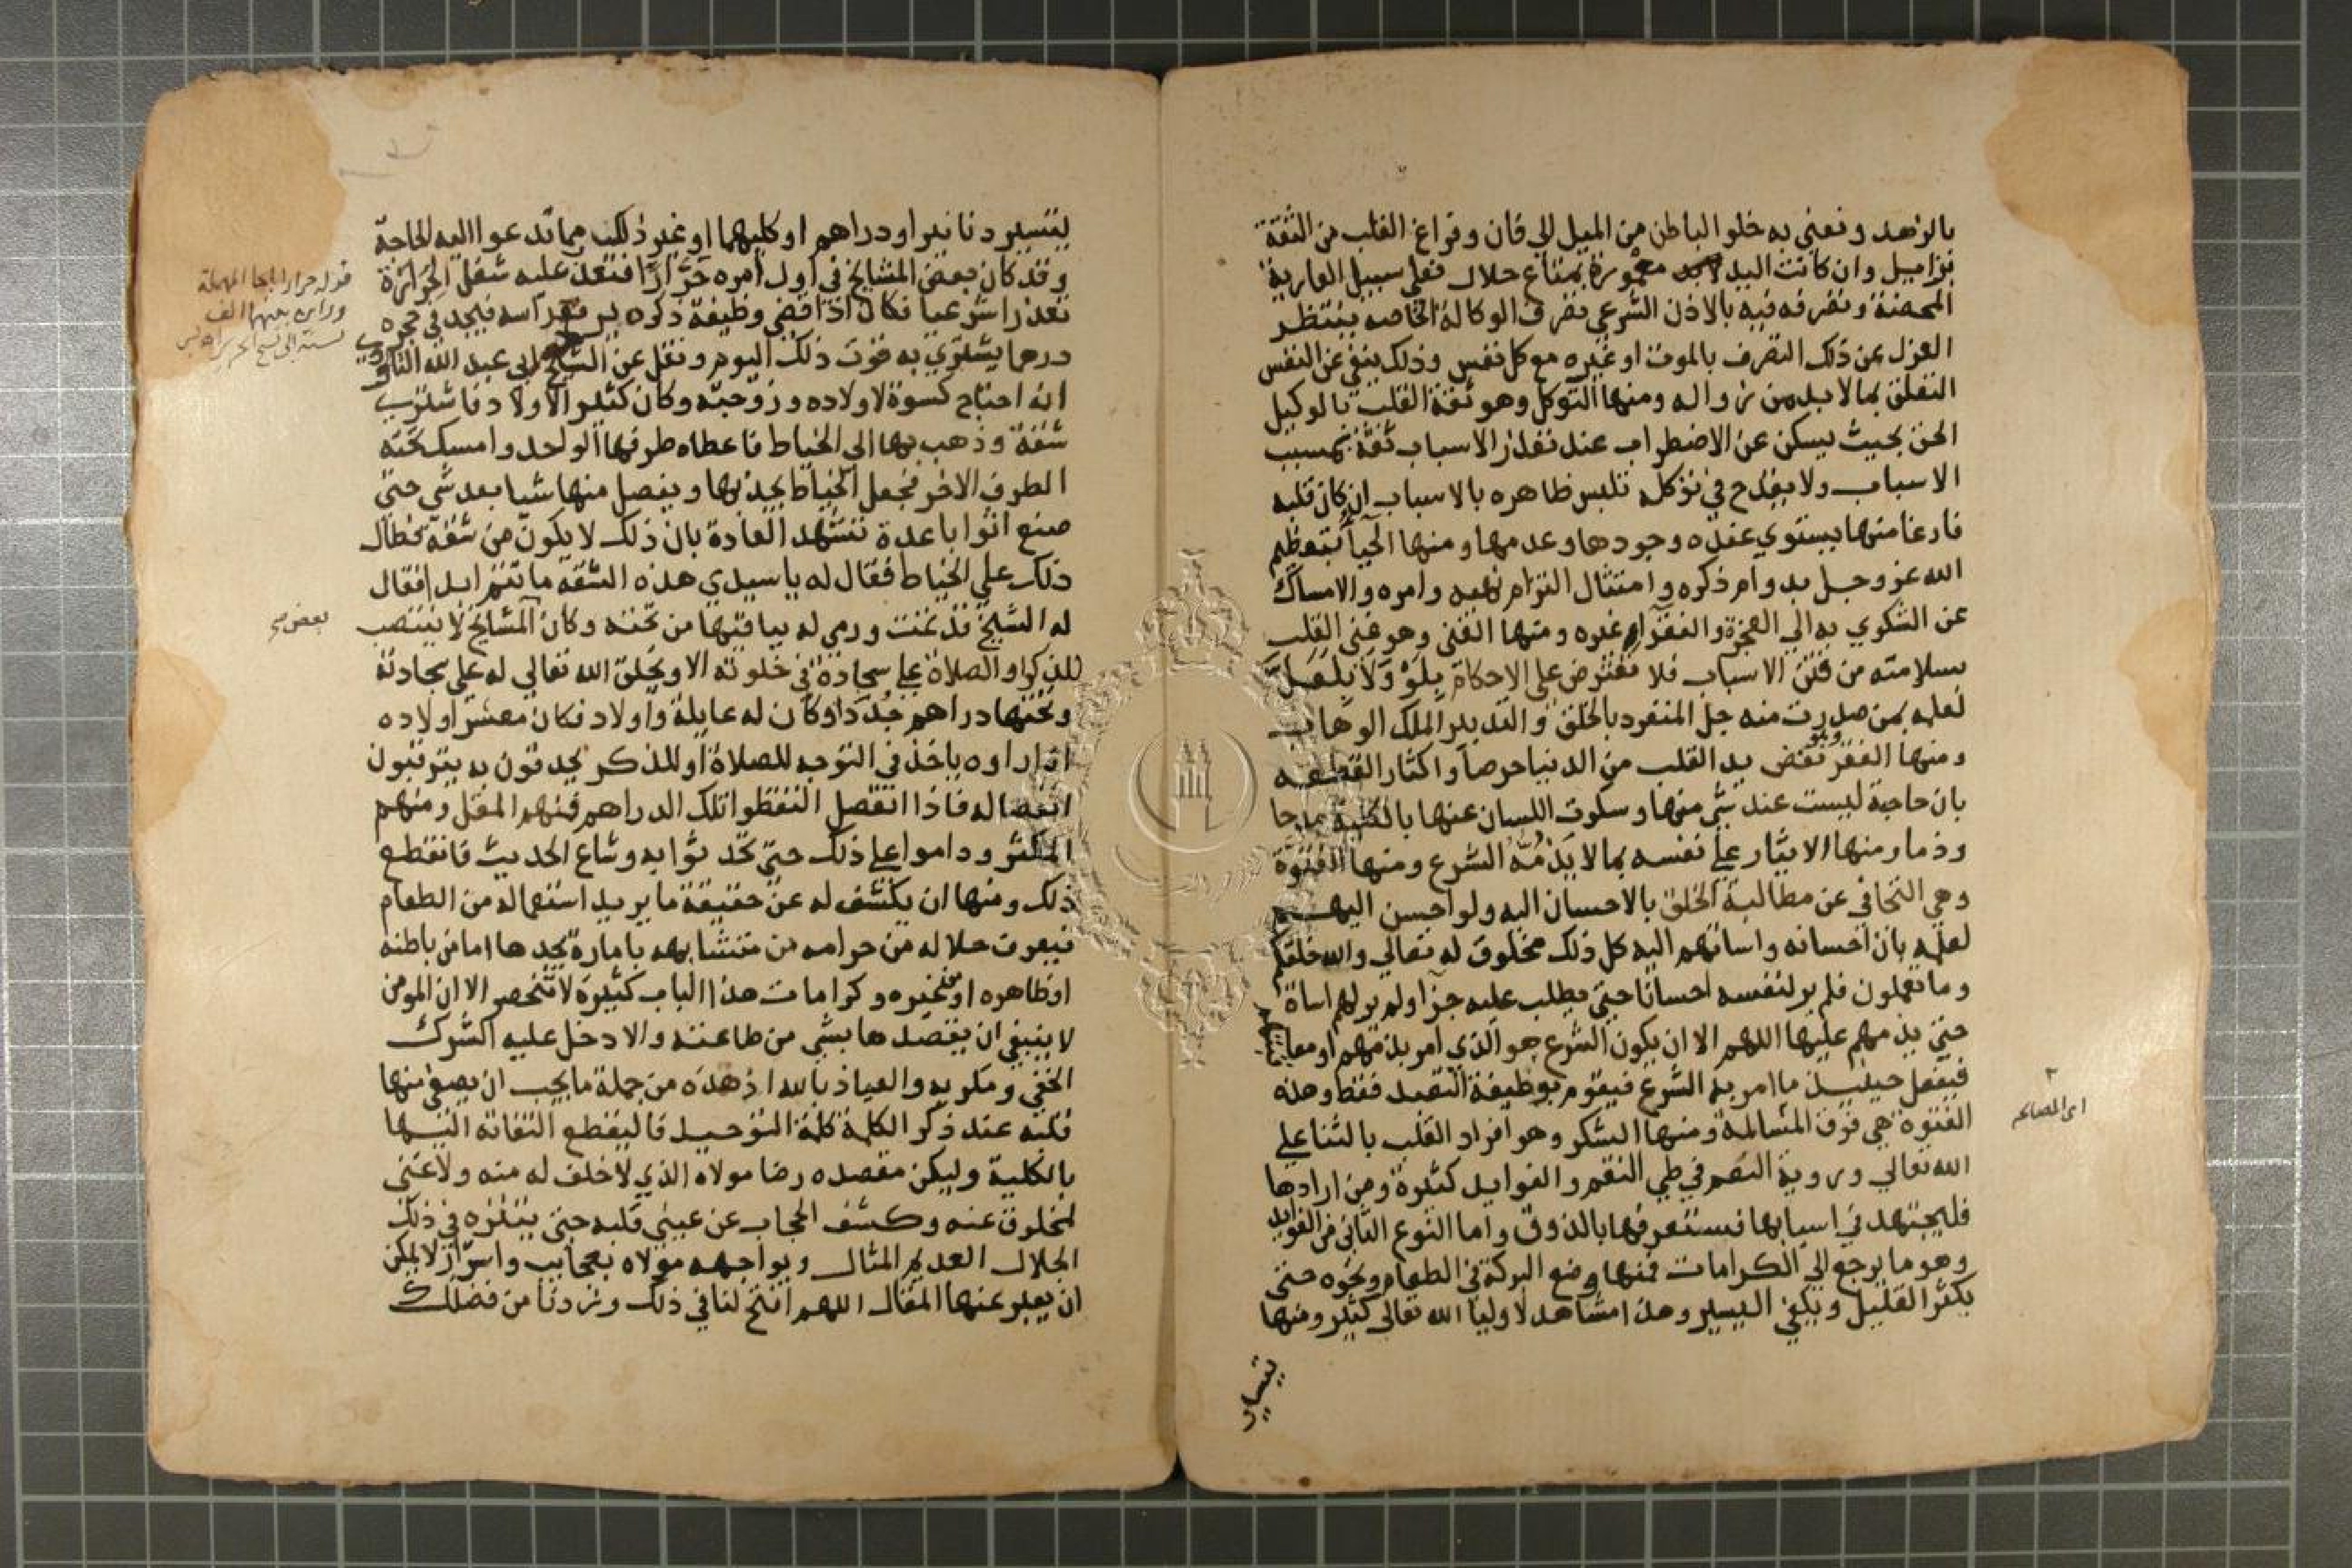 بالزهد ونعني به خلو الباطن من الميل الي فان وفراغ القلب من الثقة
بزاميل وان كانت اليد معمورة بمتاع حلال فعلي سبيل العارية
المحضة وتصرفه فيه بالاذن الشرعي تصرف الوكالة الخاصه ينتظر
العزل عن ذلك التصرف بالموت او غيره مع كل نفس وذلك ينفي عن النفس
التعلق بما لا بد من زواله ومنها التوكل وهو ثقة القلب بالوكيل
الحق بحيث يسكن عن الاضطراب عند تعذر الاسباب ثقة بمسبب
الاسباب ولا يقدح في توكله تلبس ظاهره بالاسباب ان كان قلبه
فارغا منها يستوي عنده وجودها وعدمها ومنها الحيا بتعظيم
الله عز وجل بدوام ذكره وامتثال التزام نهيه وامره والامساك
عن الشكوي به الي العجزة والفقرا غيره ومنها الغني وهو غني القلب
بسلامته من فتن الاسباب فلا يعترض علي الاحكام بلو ولا بلعل
لعلمه بمن صدرت منه جل المنفرد بالخلق والتدبير الملك الوهاب
ومنها الفقر وهو نفض يد القلب من الدنيا حرصا واكثارا لقطعه
بان حاجة ليست عند شي منها وسكوت اللسان عنها بالكلية مدحا
وذما ومنها الايثار علي نفسه بما لا يذمه الشرع ومنها الفتوة
وهي التجافي عن مطالبة الخلق بالاحسان اليه ولو احسن اليهم
لعلمه بان احسانه واساتهم اليه كل ذلك مخلوق له تعالي والله خلقكم
وما تعملون فلم ير لنفسه احسانا حتي يطلب عليه جزا ولم ير لهم اساة
حتي يذمهم عليها اللهم الا ان يكون الشرع هو الذي امر بذمهم او
فيفعل حينيذ ما امر به الشرع فيقوم بوظيفة التعبد فقط وهذه
الفتوة هي فوق المسالمة ومنها الشكر وهو افراد القلب بالثنا علي
الله تعالي ورؤية النعم في طي النقم والفوايد كثيرة ومن ارادها
فليجتهد في اسبابها فستعرفها بالذوق واما النوع الثاني من الفوايد
وهو ما يرجع الي الكرامات فمنها وضع البركة في الطعام ونحوه حتي
يكثر القليل ويكفي اليسير وهذا مشاهد لاوليا الله تعالي كثير ومنها
تيسير
اي المصالح
لتيسير دنانير او دراهم او كليهما او غير ذلك مما تدعوا اليه الحاجة
وقد كان بعض المشايخ في اول امره حرارا فتعذر عليه شغل الحرارة
تعذرا شرعيا فكان اذا قضي وظيفة ذكره يرفع راسه فيجد في حجره
درهما يشتري به قوت ذلك اليوم ونقل عن الشيخ ابي عبد الله التاودي
انه احتاج كسوة لاولاده وزوجته وكان كثير الاولاد فاشتري
شقة وذهب بها الي الخياط فاعطاه طرفها الواحد وامسك تحته
الطرف الاخر فجعل الخياط يجذبها ويفصل منها شيا بعد شي حتي
صنع اثوابا عدة تشهد العادة بان ذلك لا يكون من شقة فطال
ذلك علي الخياط فقال له يا سيدي هذه الشقة ما تتم ابدا فقال
له الشيخ قد تمت ورمي له بباقيها من تحته وكان المشايخ لا ينتصب
للذكر او الصلاة علي سجادة في خلوته الا ويخلق الله تعالي له علي سجادته
وتحتها دراهم جددا وكان له عايلة واولاد فكان معشر اولاده
اذا راوه ياخذ في التوجه للصلاة او للذكر يحدقون به يترقبون
انفصاله فاذا انفصل التقطوا تلك الدراهم فمنهم المقل ومنهم
المكثر وداموا علي ذلك حتي تحدثوا به وشاع الحديث فانقطع
ذلك ومنها ان يكشف له عن حقيقة ما يريد استعماله من الطعام
فيعرف حلاله من حرامه من متشابهه بامارة يجدها اما من باطنه
او ظاهره او من غيره وكرامات هذا الباب كثيرة لا تنحصر الا ان المومن
لا ينبغي ان يقصدها بشي من طاعته والا دخل عليه الشرك
الخفي ومكر به والعياذ بالله اذ هذه من جملة ما يجب ان يصفي منها
قلبه عند ذكر الكلمة كلمة التوحيد فاليقطع التفاته اليها
بالكلية وليكن مقصده رضا مولاه الذي لا خلف له منه ولا غني
لمخلوق عنه وكشف الحجاب عن عيني قلبه حتي يتنزه في ذلك
الجلال العديم المثال ويواجهه مولاه بعجايب واسرار لا يمكن
ان يعبر عنها المقال اللهم افتح لنا في ذلك وزدنا من فضلك
قوله حرارا بالحا المهملة
وراين بينهما الف
نسبة الي نسج الحرير
بعض صح